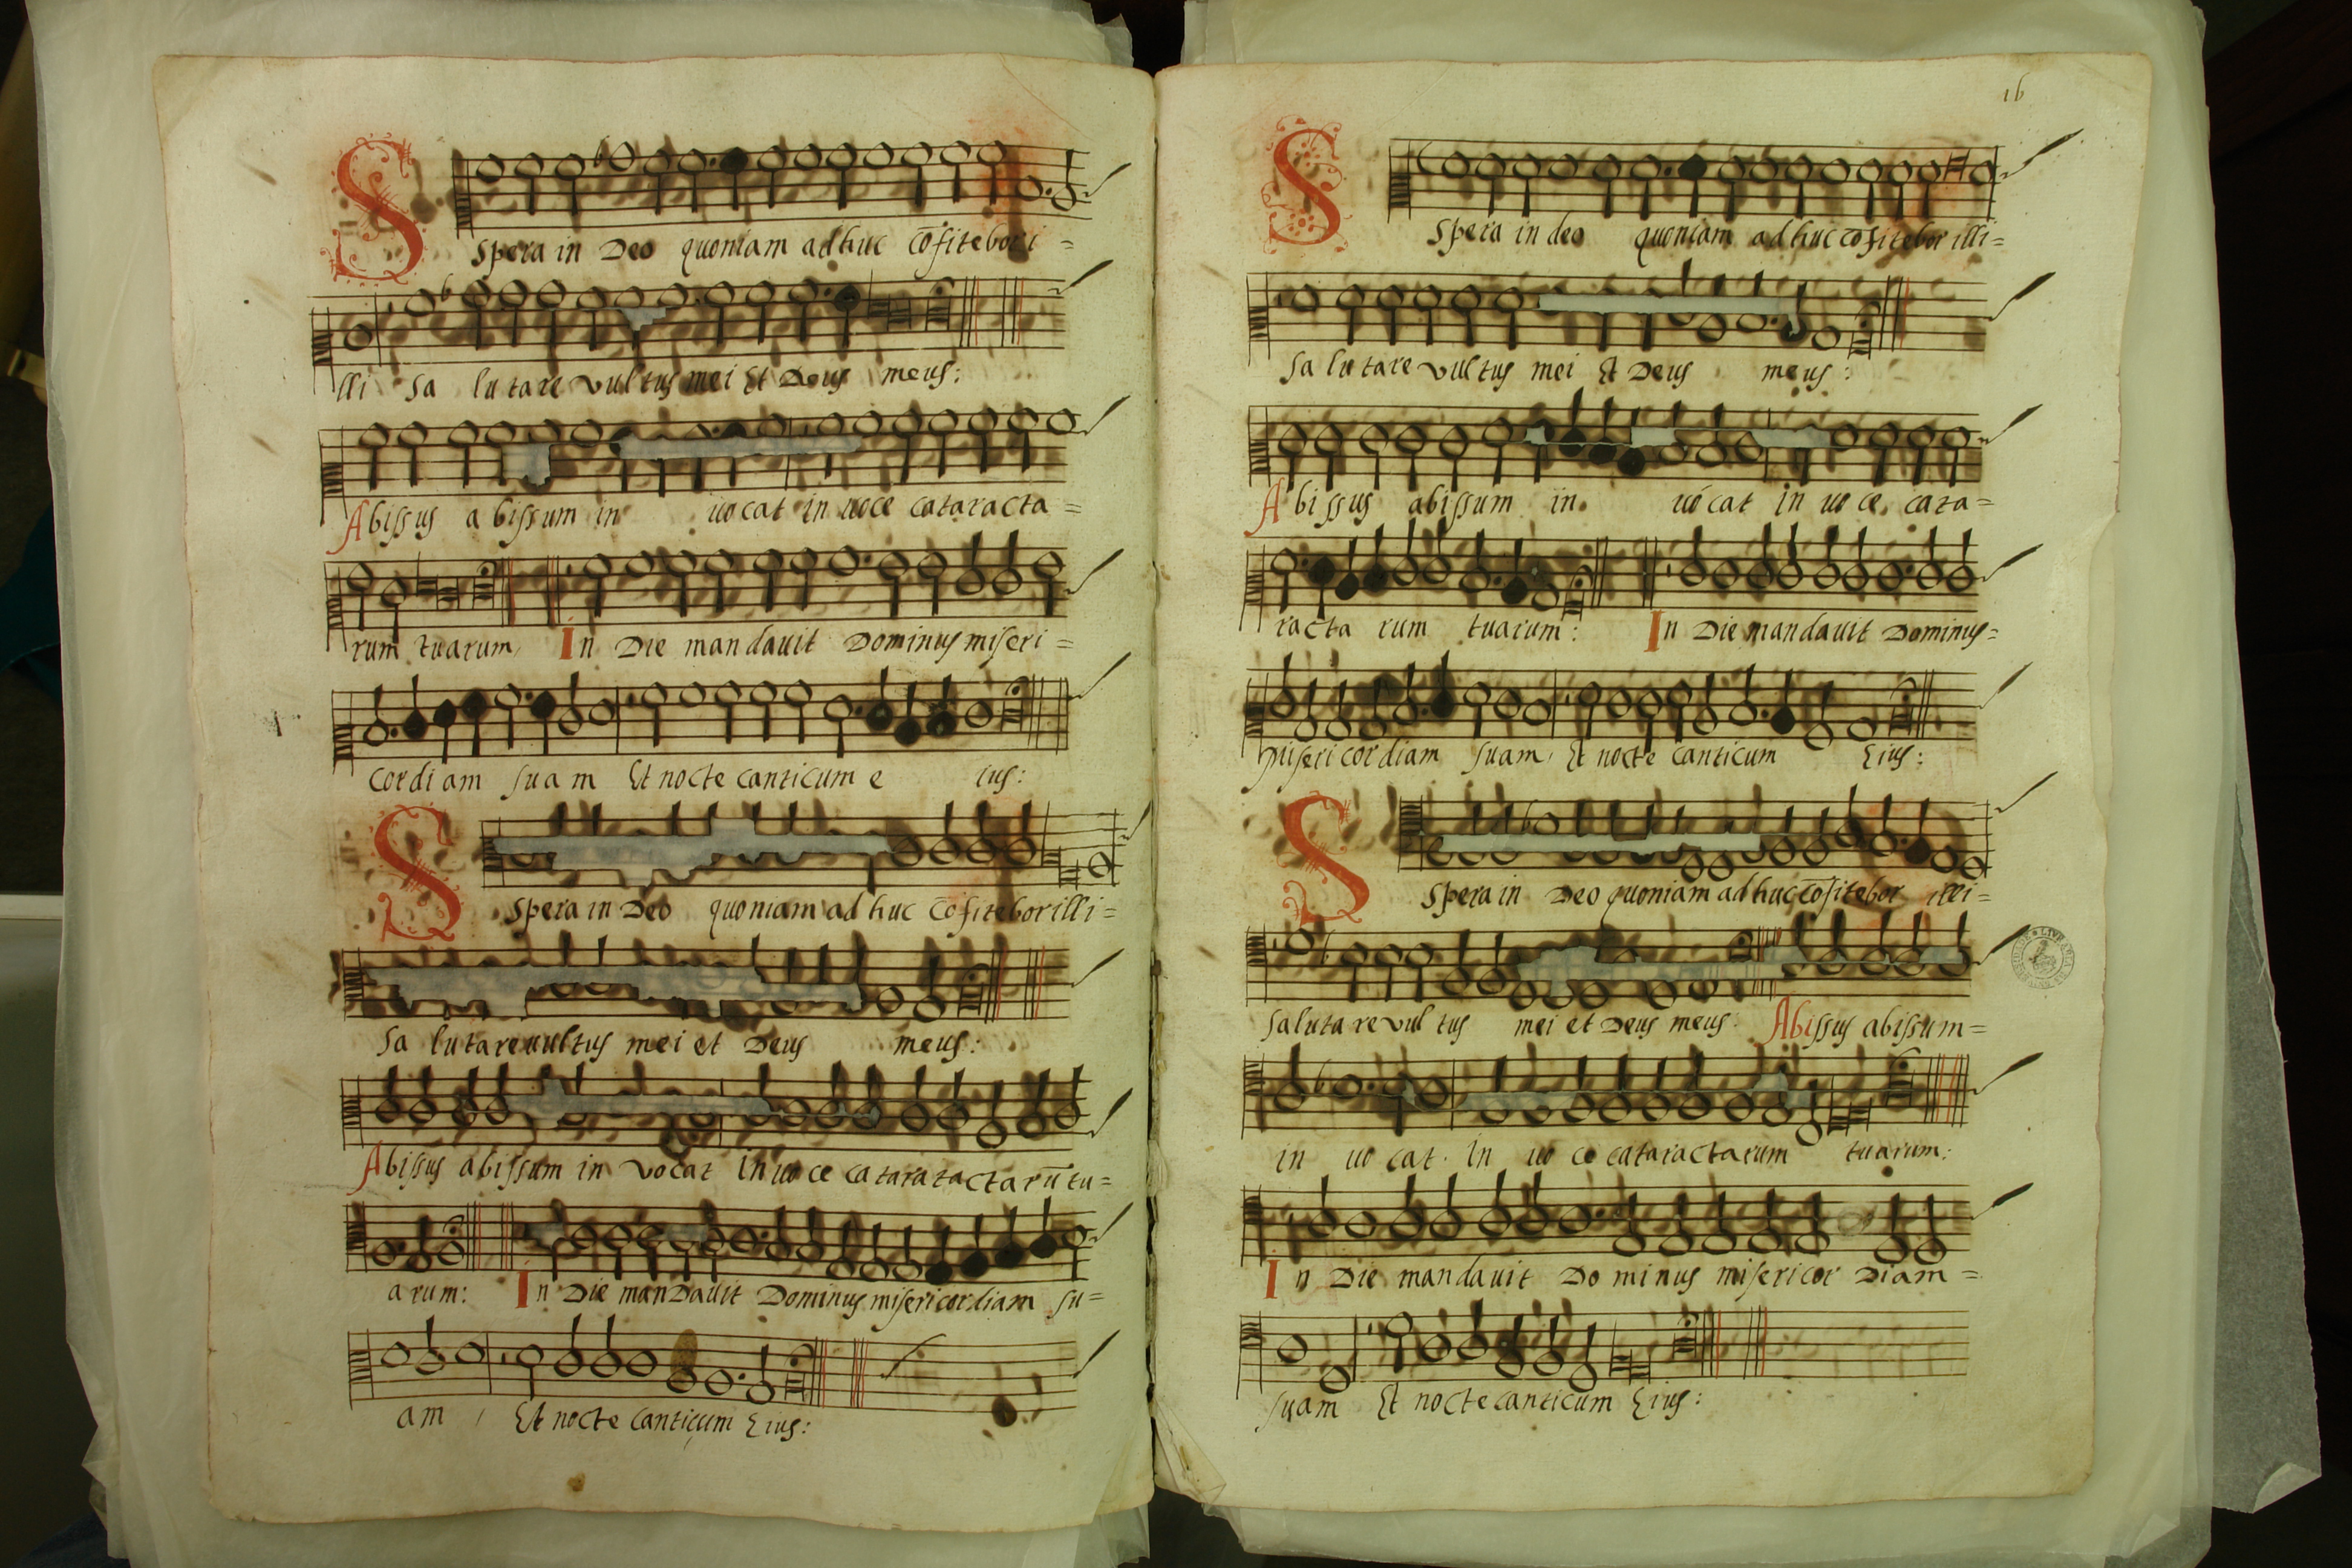 Spera in Deo quoniam adhuc cõfitebor i=
lli Sa lutare vultus mei Et Deus meus:
Abissus abissum in uocat in uoce cataracta=
rum tuarum, In Die mandauit Dominus miseri=
cordiam suam Et nocte canticum e ius:
Spera in Deo quoniam ad huc cõfitebor illi=
Sa lutare uultus mei et Deus meus:
Abissus abissum in vocat in uoce cataratactarũ tu=
arum: In Die mandauit Dominus misericordiam su=
am, Et nocte canticum Eius:
16
Spera in deo quoniam adhuc cõfitebor illi=
Sa lutare vultus mei Et Deus meus:
Abissus abissum in uócat in uoce, cata=
racta rum tuarum: In Die mandauit Dominus=
Misericordiam suam, Et nocte canticum Eius:
Spera in Deo quoniam adhuc cõfitebor illi=
Salutare vul tus mei et Deus meus: Abissus abissum=
in uo cat. In uo ce cataractarum tuarum:
In Die mandauit Do minus misericor Diam=
suam Et nocte canticum Eius: